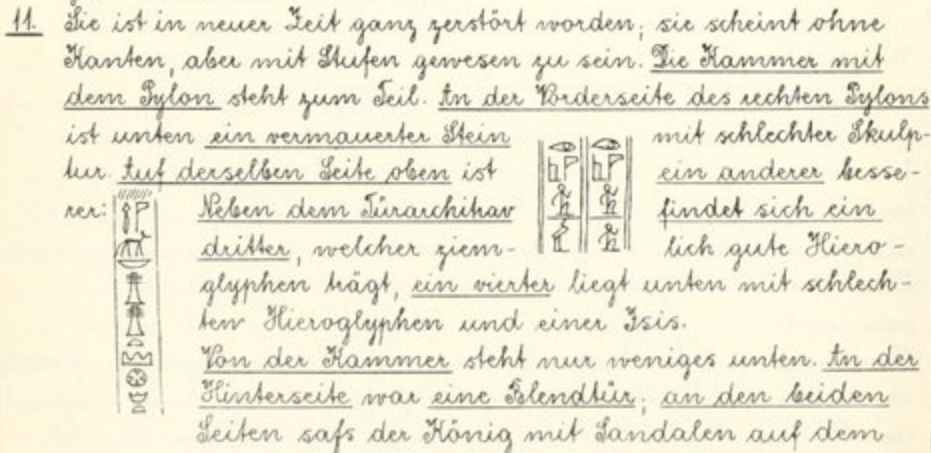 11. Sie ist in neuer Zeit ganz zerstört worden; sie scheint ohne
Kanten, aber mit Stufen gewesen zu sein. Die Kammer mit
dem Pylon steht zum Teil. An der Vorderseite des rechten Pylons
ist unten ein vermauerter Stein mit schlechter Skulp-
tur. Auf derselben Seite oben ist ein anderer besse-
rer: Neben dem Türarchitrav findet sich ein
dritter, welcher ziem- lich gute Hiero-
glyphen trägt, ein vierter liegt unten mit schlech-
ten Hieroglyphen und einer Isis.
Von der Kammer steht nur weniges unten. An der
Hinterseite war eine Blendtür; an den beiden
Seiten safs der König mit Sandalen auf dem